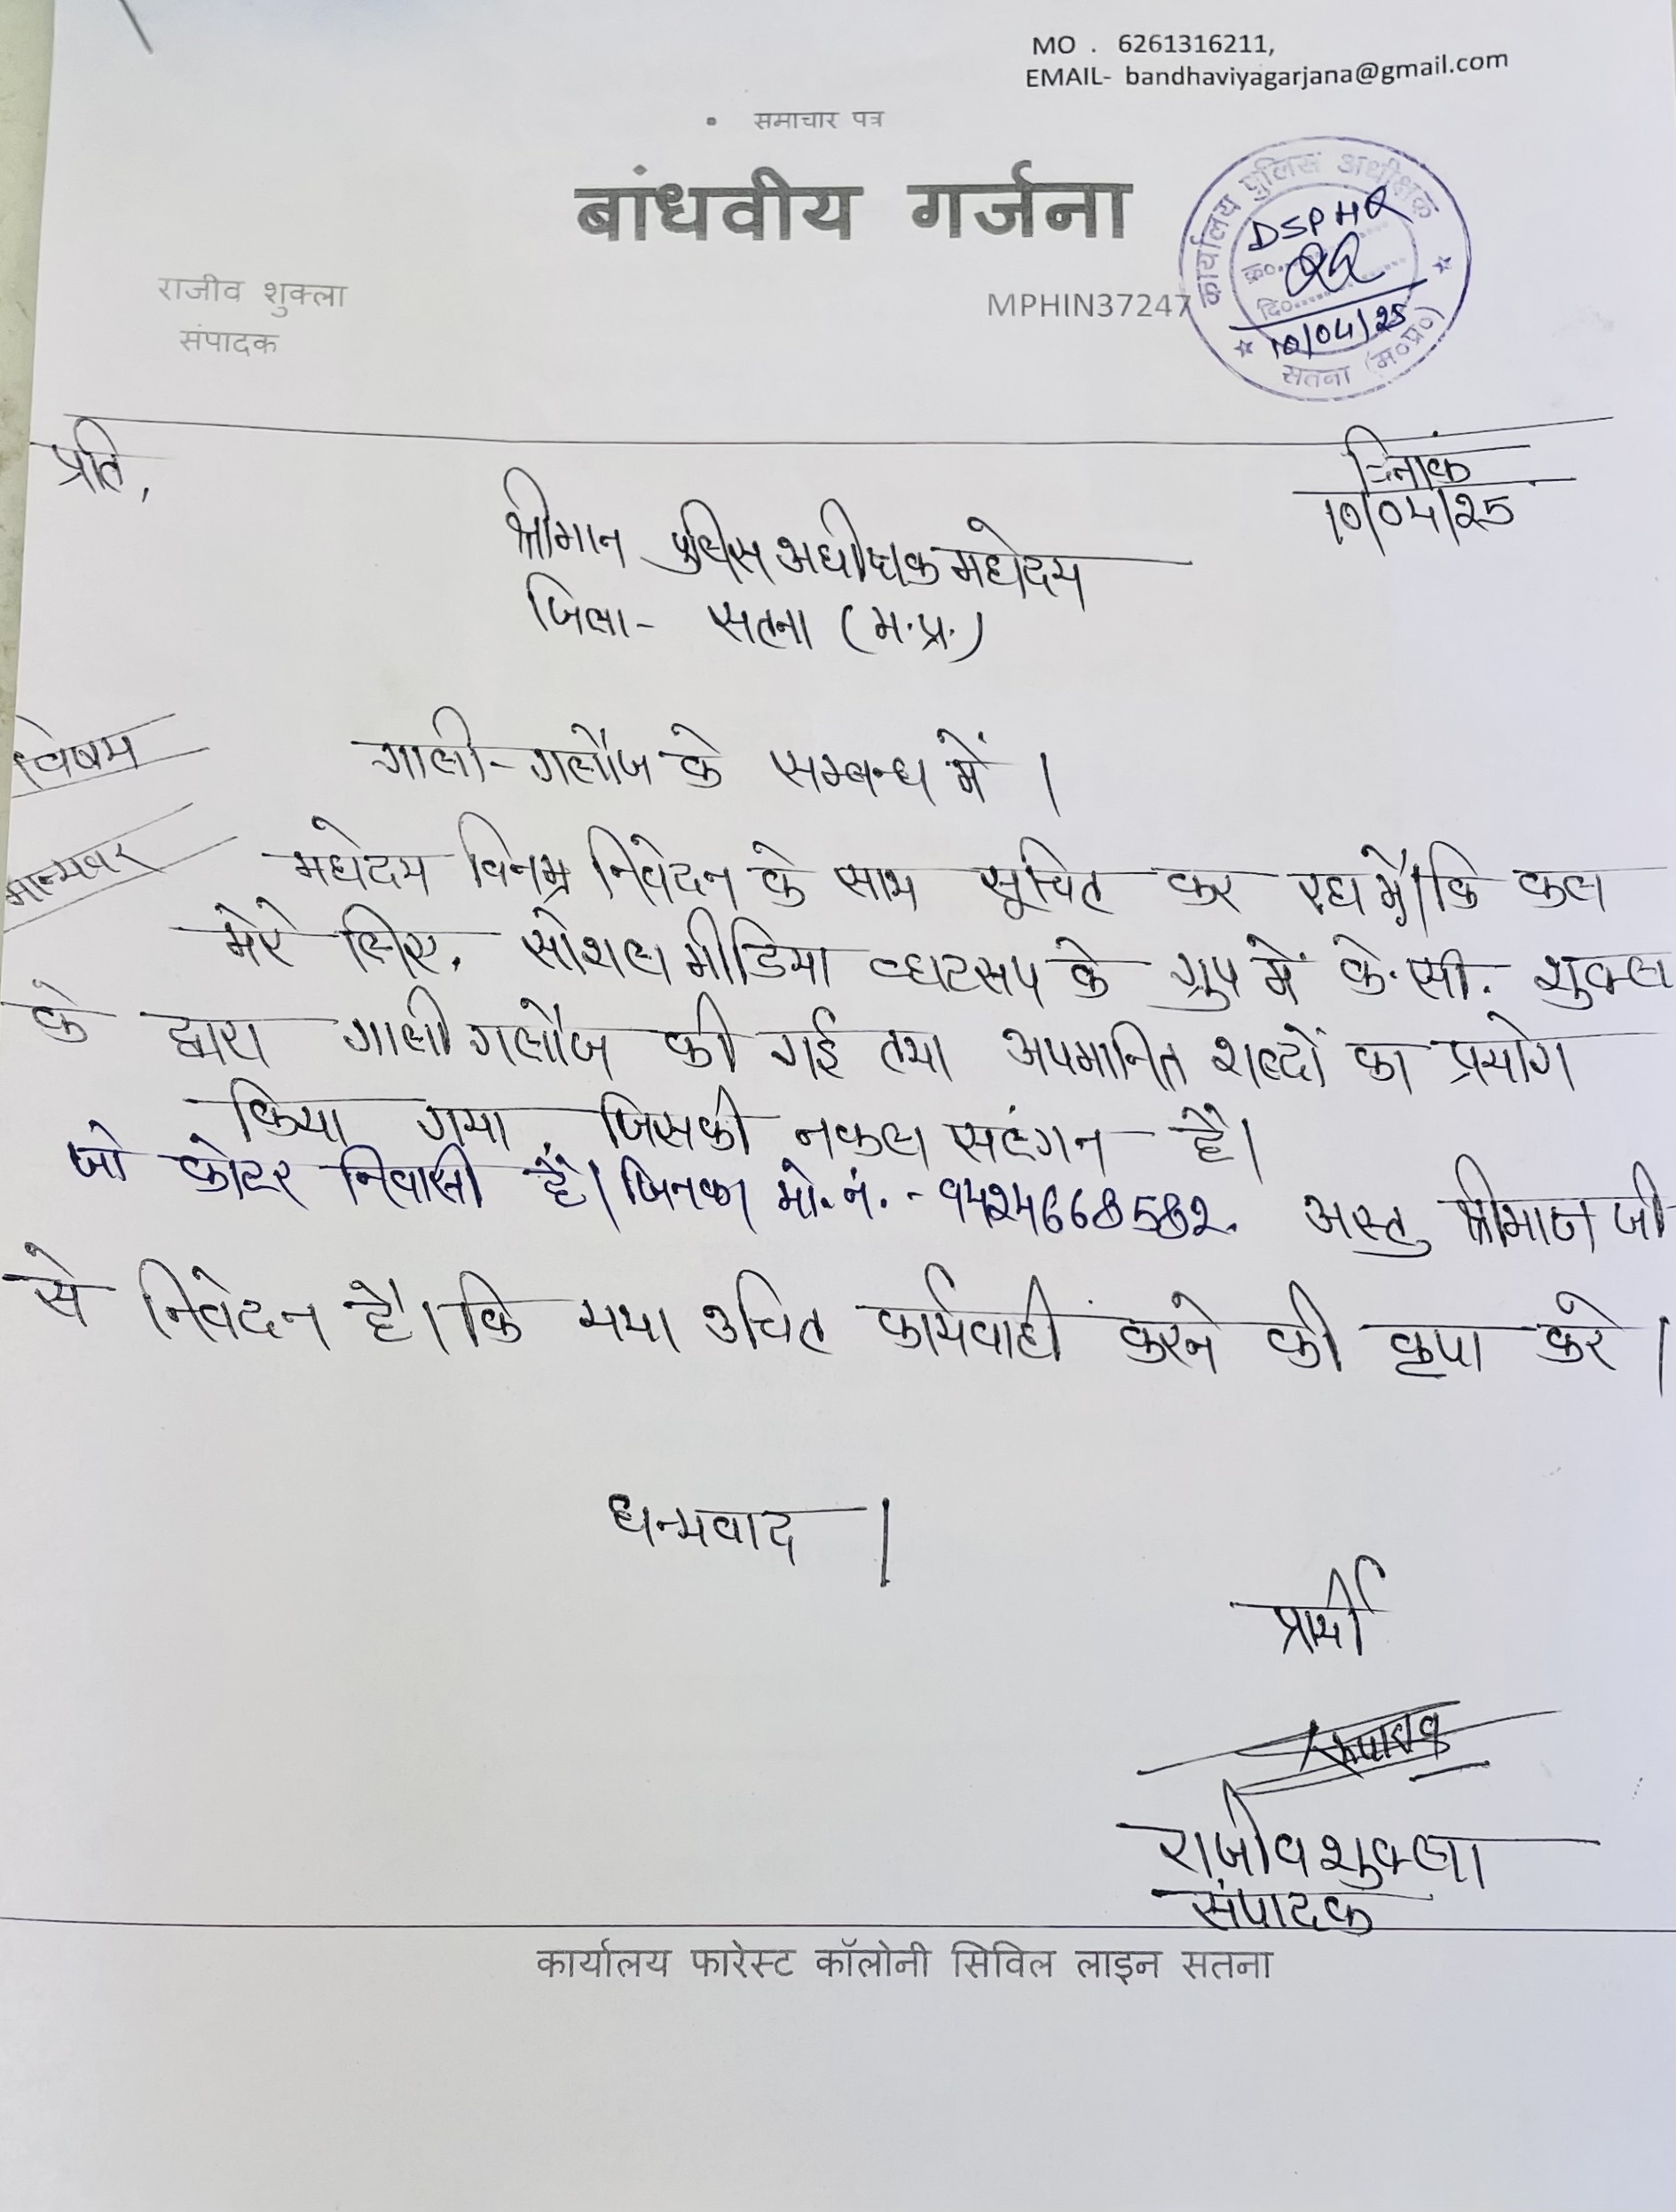 MO . 6261316211,
EMAIL- bandhaviyagarjana@gmail.com
• समाचार पत्र
बांधवीय गर्जना
राजीव शुक्ला
संपादक
MPHIN37247
कार्यालय पुलिस अधीक्षक
DSPHQ
क्र०
दि०
10/04/25
सतना (म०प्र०)
प्रति,
दिनांक
10/04/25
श्रीमान पुलिस अधीक्षक महोदय
जिला - सतना (म.प्र.)
विषय गाली-गलौज के सम्बन्ध में ।
मान्यवर महोदय विनम्र निवेदन के साथ सूचित कर रहा हूँ। कि कल
मेरे लिए, सोशल मीडिया व्हाटसप के ग्रुप में के.सी. शुक्ल
के द्वारा गाली गलौज की गई तथा अपमानित शब्दों का प्रयोग
किया गया, जिसकी नकल सलंगन है।
जो कोटर निवासी हैं। जिनका मो.नं. - 9424668582. अस्तु श्रीमान जी
से निवेदन है। कि यथा उचित कार्यवाही करने की कृपा करे ।
धन्यवाद ।
प्रार्थी
राजीव शुक्ला
संपादक
कार्यालय फारेस्ट कॉलोनी सिविल लाइन सतना